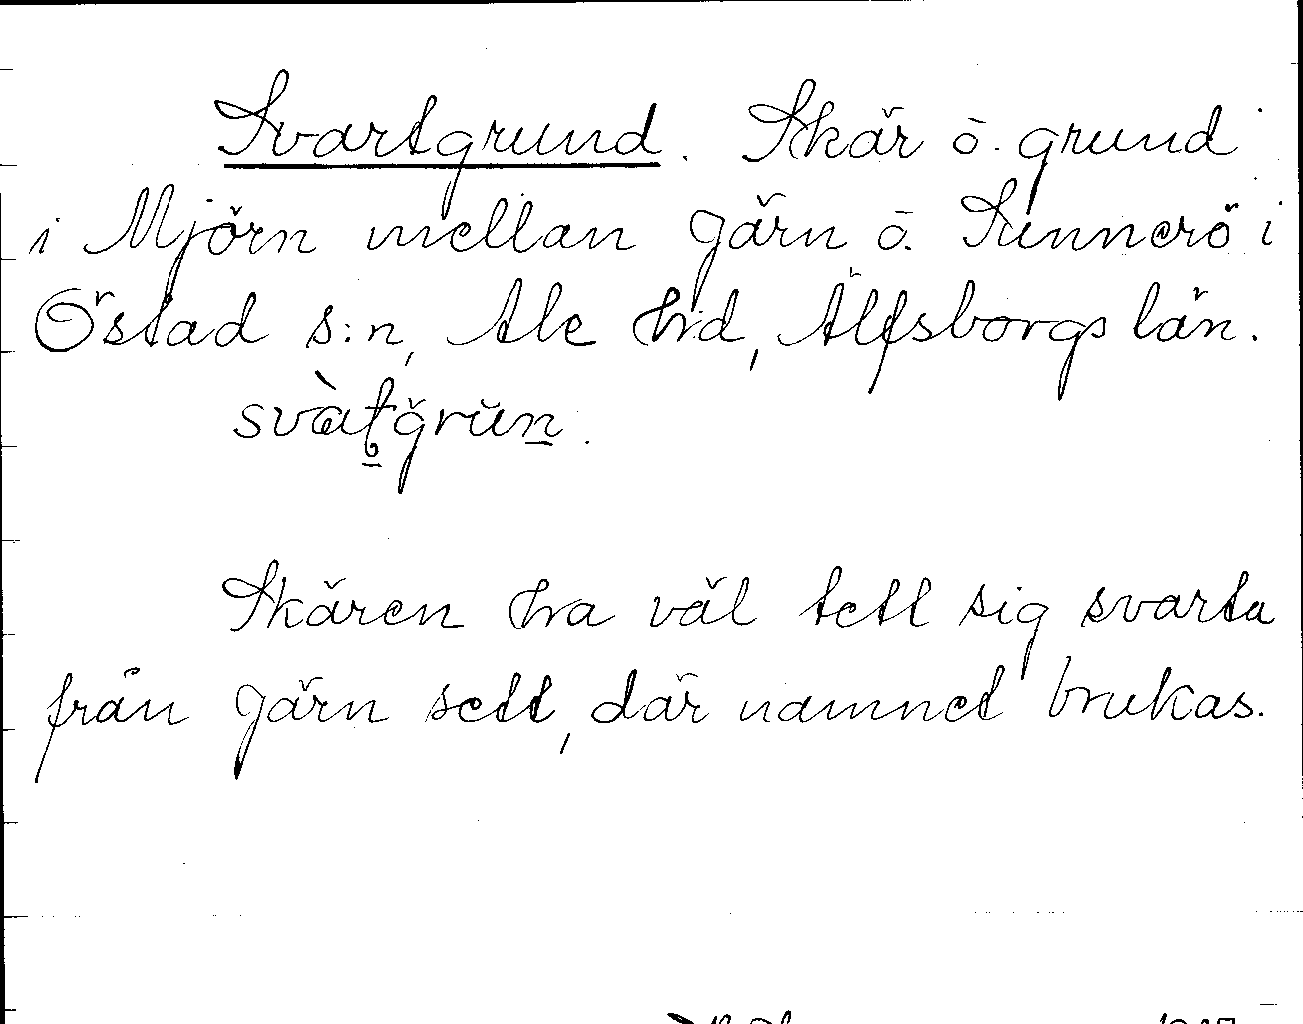 Svartgrund. Skär o. grund
i Mjörn mellan Gärn o. Sunnerö i
Östad s:n, Ale hd, Älfsborgs län.
Skären ha väl tett sig svarta
från Gärn sett, där namnet brukas.